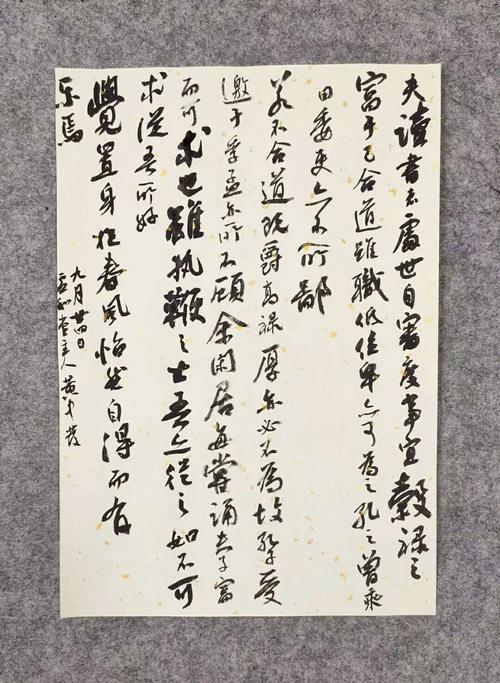 夫读书者處世自審度事宜穀禄之
富于己合道雖職低位卑亦可為之孔子曾乘
田委吏亦不所鄙
若不合道既爵高禄厚亦必不為故孔子受
邀于季孟亦所不顧余闲居每嘗誦夫子富
而可求也雖执鞭之士吾亦從之如不可
求從吾所好
覺置身於春風怡然自得而有
乐焉
九月廿四日
和堂主人黄